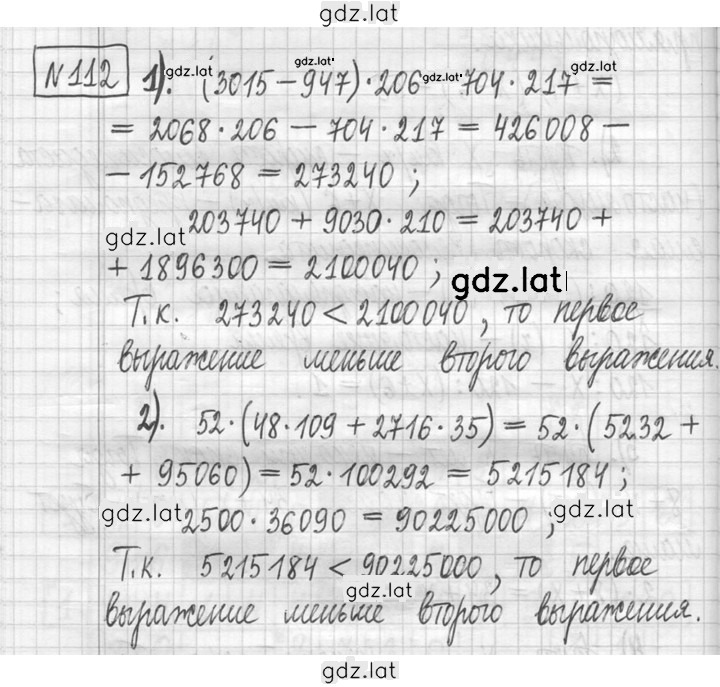 gdz.lat
N 112 1). gdz.lat gdz.lat (3015 - 947) · 206 gdz.lat 704 · 217 gdz.lat =
= 2068 · 206 - 704 · 217 = 426008 -
- 152768 = 273240 ;
gdz.lat 203740 + 9030 · 210 = 203740 +
+ 1896300 = 2100040 ; gdz.lat
Т.к. 273240 < 2100040, то первое
выражение меньше второго выражения.
2). 52 · (48 · 109 + 2716 · 35) = 52 · (5232 +
+ 95060) = 52 · 100292 = 5215184 ;
gdz.lat 2500 · 36090 = 90225000 ; gdz.lat
Т.к. 5215184 < 90225000, то первое
gdz.lat
выражение меньше второго выражения.
gdz.lat